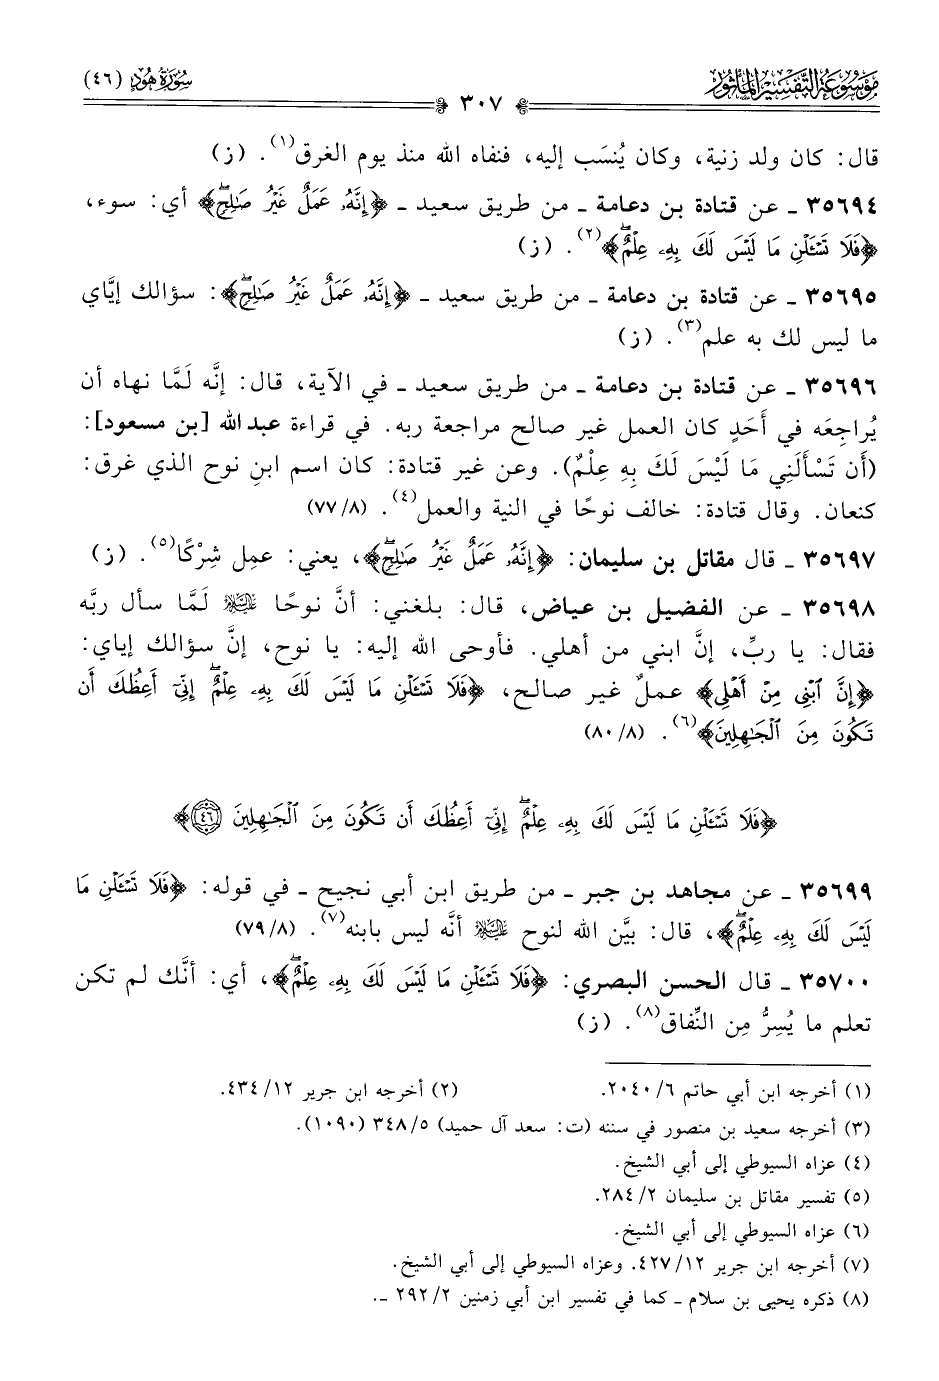 مَوْسُوعَة التَّفْسِير المَأْثُور
سُورَة هُود (٤٦)
٣٠٧
قال: كان ولد زنية، وكان يُنسَب إليه، فنفاه الله منذ يوم الغرق(١). (ز)
٣٥٦٩٤ ـ عن قتادة بن دعامة ـ من طريق سعيد ـ ﴿إِنَّهُۥ عَمَلٌ غَيْرُ صَٰلِحٍۖ﴾ أي: سوء،
﴿فَلَا تَسْـَٔلْنِ مَا لَيْسَ لَكَ بِهِۦ عِلْمٌۖ﴾(٢). (ز)
٣٥٦٩٥ ـ عن قتادة بن دعامة ـ من طريق سعيد ـ ﴿إِنَّهُۥ عَمَلٌ غَيْرُ صَٰلِحٍۖ﴾: سؤالك إيَّاي
ما ليس لك به علم(٣). (ز)
٣٥٦٩٦ ـ عن قتادة بن دعامة ـ من طريق سعيد ـ في الآية، قال: إنَّه لَمَّا نهاه أن
يُراجِعَه في أَحَدٍ كان العمل غير صالح مراجعة ربه. في قراءة عبد الله [بن مسعود]:
(أَن تَسْأَلَنِي مَا لَيْسَ لَكَ بِهِ عِلْمٌ). وعن غير قتادة: كان اسم ابنِ نوح الذي غرق:
كنعان. وقال قتادة: خالف نوحًا في النية والعمل(٤). (٧٧/٨)
٣٥٦٩٧ ـ قال مقاتل بن سليمان: ﴿إِنَّهُۥ عَمَلٌ غَيْرُ صَٰلِحٍۖ﴾، يعني: عمِل شِرْكًا(٥). (ز)
٣٥٦٩٨ ـ عن الفضيل بن عياض، قال: بلغني: أنَّ نوحًا ﵇ لَمَّا سأل ربَّه
فقال: يا ربِّ، إنَّ ابني من أهلي. فأوحى الله إليه: يا نوح، إنَّ سؤالك إياي:
﴿إِنَّ ٱبْنِى مِنْ أَهْلِى﴾ عملٌ غير صالح، ﴿فَلَا تَسْـَٔلْنِ مَا لَيْسَ لَكَ بِهِۦ عِلْمٌۖ إِنِّىٓ أَعِظُكَ أَن
تَكُونَ مِنَ ٱلْجَٰهِلِينَ﴾(٦). (٨٠/٨)
﴿فَلَا تَسْـَٔلْنِ مَا لَيْسَ لَكَ بِهِۦ عِلْمٌۖ إِنِّىٓ أَعِظُكَ أَن تَكُونَ مِنَ ٱلْجَٰهِلِينَ ۝٤٦﴾
٣٥٦٩٩ ـ عن مجاهد بن جبر ـ من طريق ابن أبي نجيح ـ في قوله: ﴿فَلَا تَسْـَٔلْنِ مَا
لَيْسَ لَكَ بِهِۦ عِلْمٌۖ﴾، قال: بيَّن الله لنوح ﵇ أنَّه ليس بابنه(٧). (٧٩/٨)
٣٥٧٠٠ ـ قال الحسن البصري: ﴿فَلَا تَسْـَٔلْنِ مَا لَيْسَ لَكَ بِهِۦ عِلْمٌۖ﴾، أي: أنَّك لم تكن
تعلم ما يُسِرُّ مِن النِّفاق(٨). (ز)
(١) أخرجه ابن أبي حاتم ٢٠٤٠/٦. (٢) أخرجه ابن جرير ٤٣٤/١٢.
(٣) أخرجه سعيد بن منصور في سننه (ت: سعد آل حميد) ٣٤٨/٥ (١٠٩٠).
(٤) عزاه السيوطي إلى أبي الشيخ.
(٥) تفسير مقاتل بن سليمان ٢٨٤/٢.
(٦) عزاه السيوطي إلى أبي الشيخ.
(٧) أخرجه ابن جرير ٤٢٧/١٢. وعزاه السيوطي إلى أبي الشيخ.
(٨) ذكره يحيى بن سلام ـ كما في تفسير ابن أبي زمنين ٢٩٢/٢ ـ.